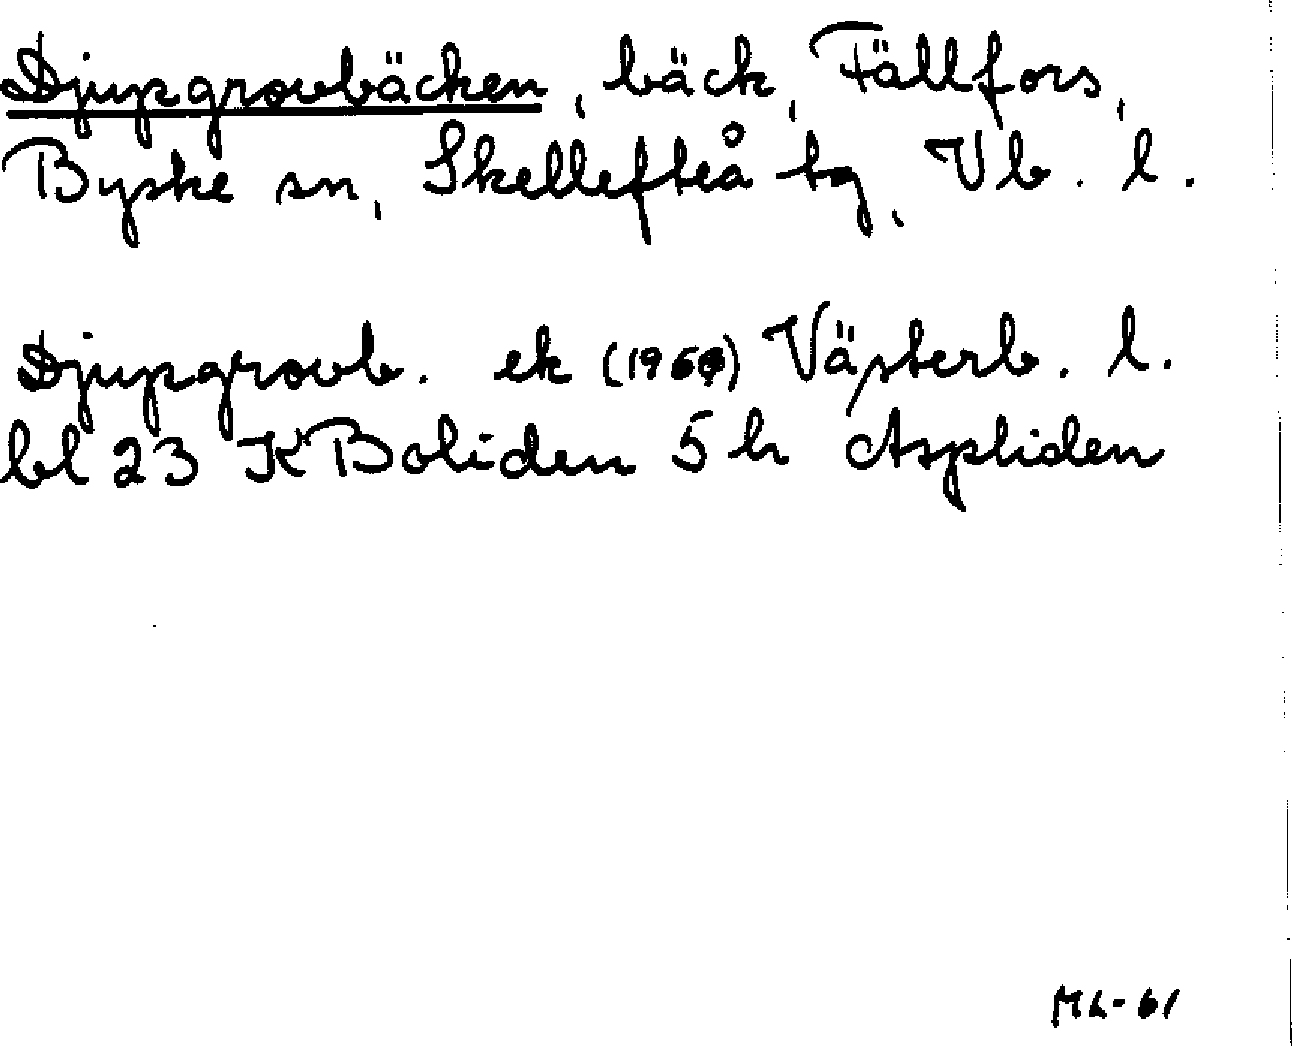 Djupgrovbäcken, bäck, Fällfors,
Byske sn, Skellefteå tg, Vb. l.
Djupgrovb. ek (1960) Västerb. l.
bl 23 K Boliden 5 h Aspliden
ML-61